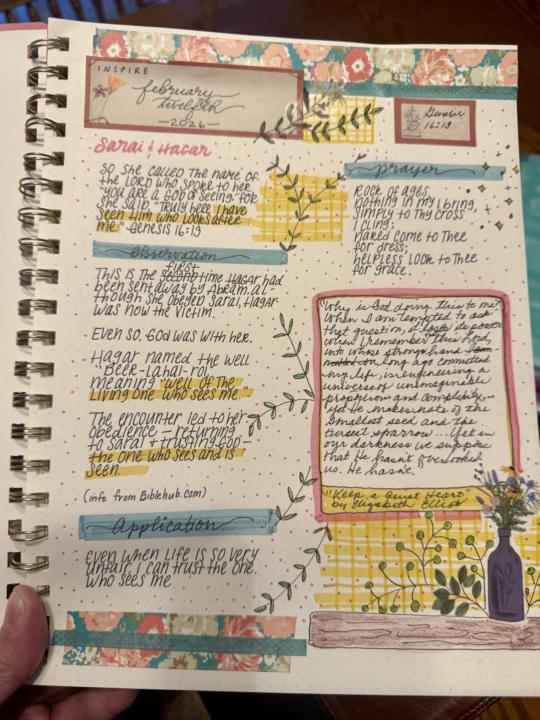 INSPIRE
february
twelfth
-2026-
Genesis
16:13
Sarai & Hagar
So she called the name of
the LORD who spoke to her,
"you are a God of seeing," for
she said, "Truly here I have
seen Him who looks after
me." Genesis 16:13
Observation
first
This is the second time Hagar had
been sent away by Abram. al-
though she obeyed Sarai, Hagar
was now the victim.
Even so, God was with her.
Hagar named the well
"Beer-lahai-roi,"
meaning "well of the
Living One who sees me."
The encounter led to her
obedience - returning
to Sarai + trusting God -
the one who sees and is
seen.
(info from Biblehub.com)
Application
Even when life is so very
unfair, I can trust the one
who sees me
prayer
Rock of ages,
nothing in my I bring,
simply to Thy cross
I cling;
naked come to Thee
for dress;
helpless look to Thee
for grace.
"Why is God doing this to me?"
When I am tempted to ask
that question, it loses its power
when I remember this Lord,
into whose strong hand I
long ago committed
my life, is engineering a
universe of unimaginable
proportions and complexity...
yet He makes note of the
smallest seed and the
tiniest sparrow... Yet in
our darkness we suppose
that He hasn't overlooked
us. He hasn't."
"Keep a Quiet Heart"
by Elizabeth Elliot